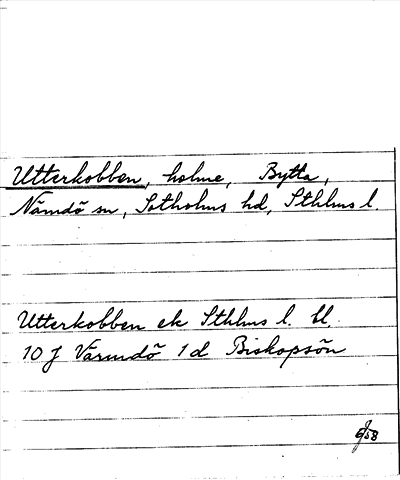 Utterkobben, holme, Bytta,
Nämdö sn, Sotholms hd, Sthlms l.
Utterkobben ek Sthlms l. bl.
10 J Värmdö 1 d Biskopsön